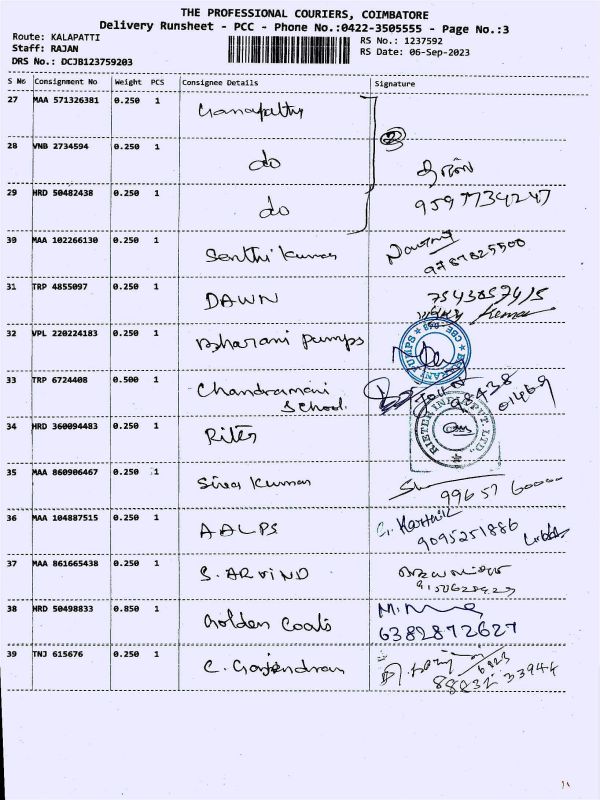 THE PROFESSIONAL COURIERS, COIMBATORE
Delivery Runsheet - PCC - Phone No.:0422-3505555 - Page No.:3
Route: KALAPATTI
RS No.: 1237592
Staff: RAJAN
RS Date: 06-Sep-2023
DRS No.: DCJB123759203
S No Consignment No Weight PCS Consignee Details Signature
27 MAA 571326381 0.250 1 Ganapathy
28 VNB 2734594 0.250 1 do
29 HRD 50482438 0.250 1 do 9597734247
30 MAA 102266130 0.250 1 Senthi Kumar 9787825500
31 TRP 4855097 0.250 1 DAWN
32 VPL 220224183 0.250 1 Bharani pumps
33 TRP 6724408 0.500 1 Chandramani School 98438 01469
34 HRD 360094483 0.250 1 Riter
35 MAA 860906467 0.250 1 Siva Kumar
36 MAA 104887515 0.250 1 AALPS G. Karthik 9095251886
37 MAA 861665438 0.250 1 S. ARVIND
38 HRD 50498833 0.850 1 Golden Coats 6382872627
39 TNJ 615676 0.250 1 C. Gajendran 88832 33944